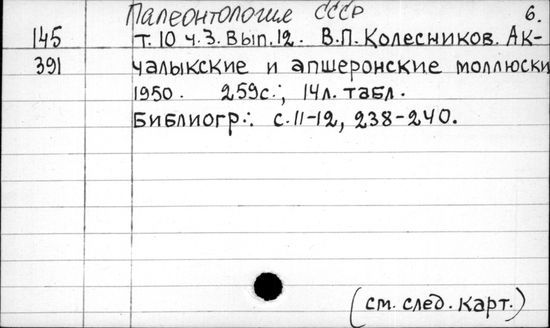 Палеонтология СССР 6.
145 т. 10 ч. 3. Вып. 12. В.П. Колесников. Ак-
391 чалыкские и апшеронские моллюски
1950. 259с.; 14л. табл.
Библиогр.: с. 11-12, 238-240.
(см. след. карт.)